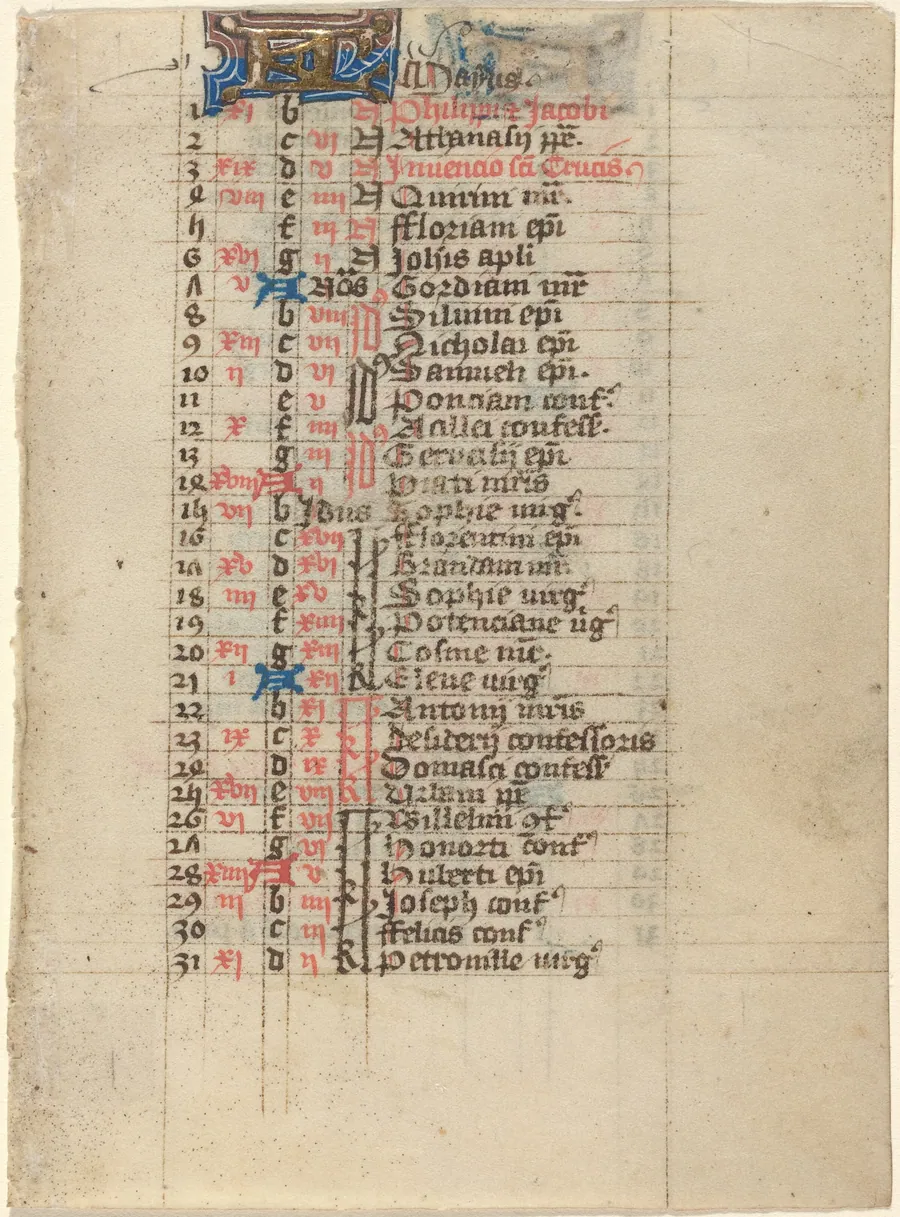 A Mayus.
1 xi b A Philippi et Jacobi
2 c vi A Athanasij ppe.
3 xix d v A Invencio sci Crucis
4 viii e iiii A Quirini mr.
5 f iii A Floriani epi
6 xvi g ii A Johis apli
7 v A Nos Gordiani mr
8 b viii Id9 Siluini epi
9 xiii c vii Nicholai epi
10 ii d vi Id9 Samueli epi.
11 e v Ponciani conf.
12 x f iiii Id9 Acillei confess.
13 g iii Geruasij epi
14 xviii A ii mris
15 vii b Idus Sophie uirg
16 c xvii Florentini epi
17 xv d xvi Brandani mr
18 iiii e xv Sophie uirg
19 f xiiii Potenciane uig
20 xii g xiii Cosme mr.
21 i A xii Elene uirg
22 b xi Antonij mris
23 ix c x Desiderij confessoris
24 d ix Domasci confess
25 xvii e viii Urbani pp
26 vi f vii Wilhelmi 9f
27 g vi Honorti conf
28 xiiii A v Huberti epi
29 iii b iiii Joseph conf
30 c iii Felicis conf
31 xi d ii Petronille uirg